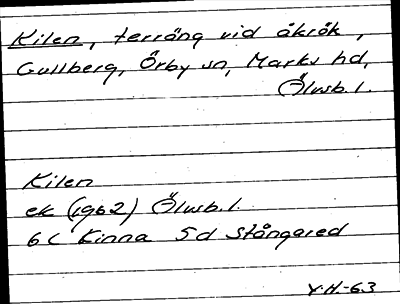 Kilen, terräng vid åkrök,
Gullberg, Örby sn, Marks hd,
Älvsb. l.
Kilen
ek (1962) Älvsb. l.
6 C Kinna 5d Stångared
Y.H.-63